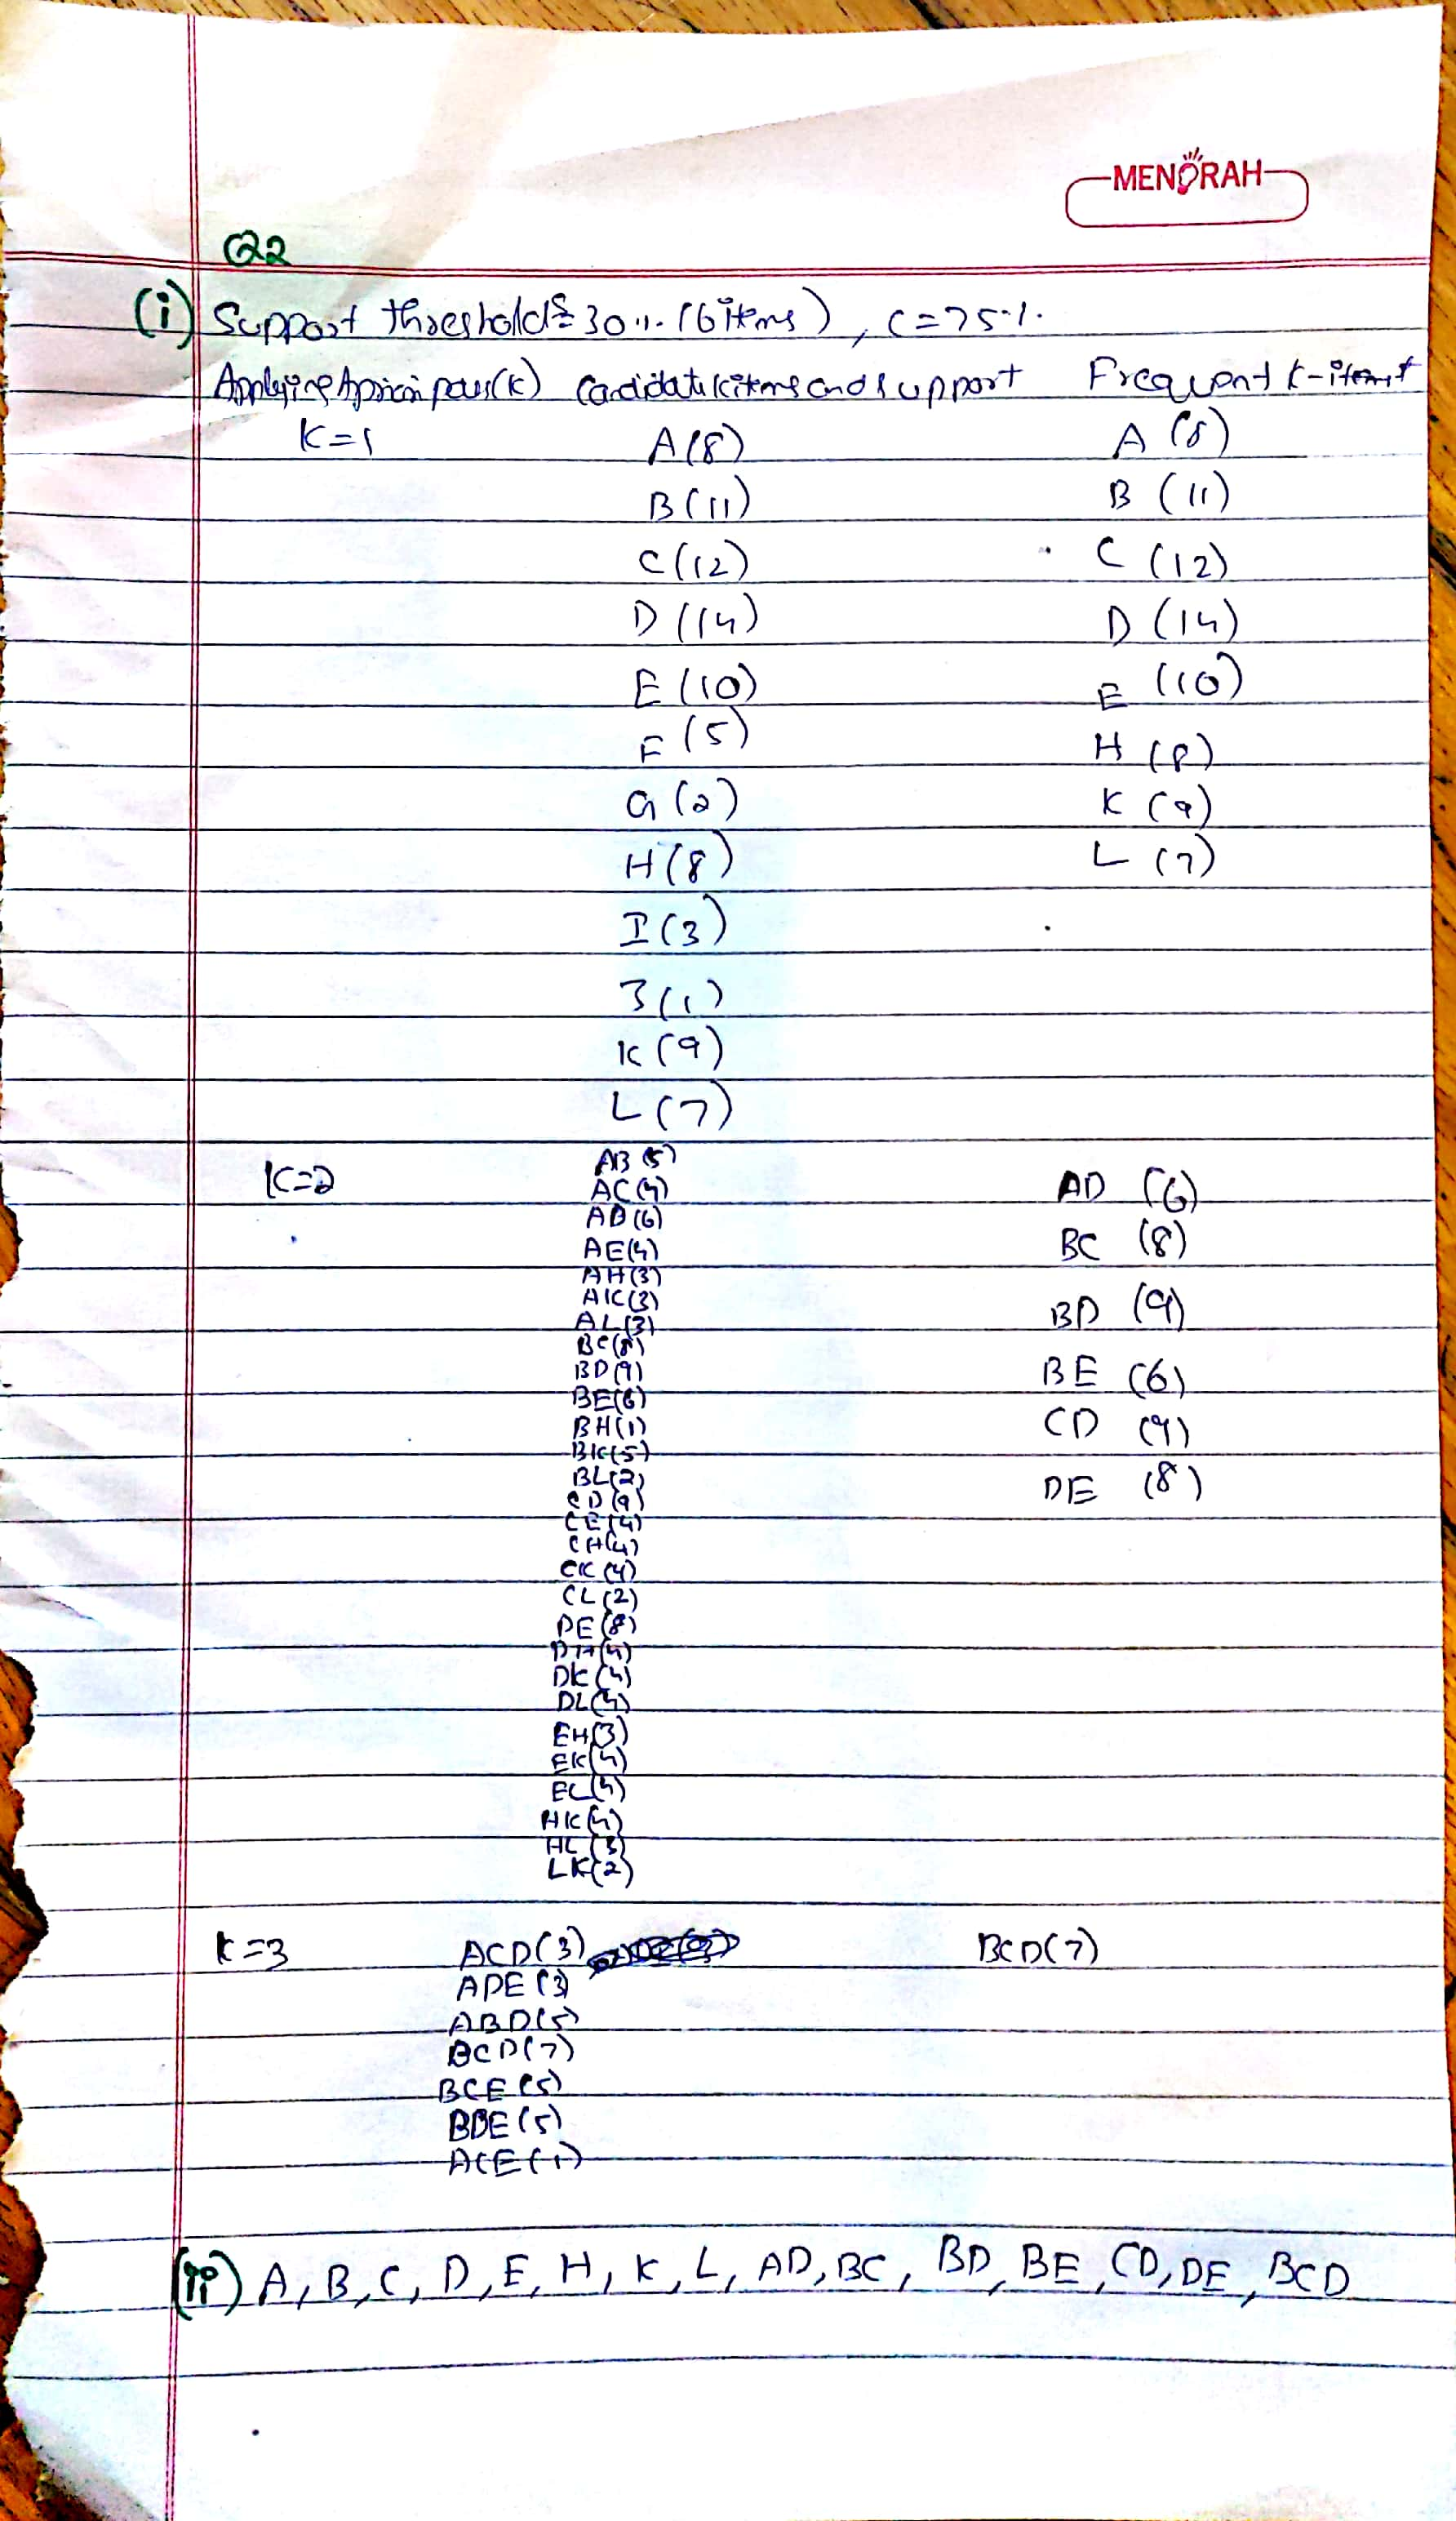 MENORAH
Q2
(i) Support threshold = 30%. (6 items), C = 75%.
Applying Apriori pass(k) Candidate k items and support Frequent k-itemst
K=1 A(8) A (8)
B(11) B (11)
C(12) C (12)
D(14) D (14)
E(10) E (10)
F(5) H (8)
G(2) K (9)
H(8) L (7)
I(3)
J(1)
K(9)
L(7)
K=2 AB(5)
AC(4) AD (6)
AD(6)
AE(4) BC (8)
AH(3)
AK(3)
AL(3) BD (9)
BC(8)
BD(9)
BE(6) BE (6)
BH(1) CD (9)
BK(5)
BL(2)
CD(9) DE (8)
CE(4)
CH(4)
CK(4)
CL(2)
DE(8)
DH(4)
DK(4)
DL(4)
EH(3)
EK(4)
EL(4)
HK(4)
HL(3)
LK(2)
K=3 ACD(3) BCD(7)
ADE(3)
ABD(5)
BCD(7)
BCE(5)
BDE(5)
ACE(1)
(ii) A, B, C, D, E, H, K, L, AD, BC, BD, BE, CD, DE, BCD